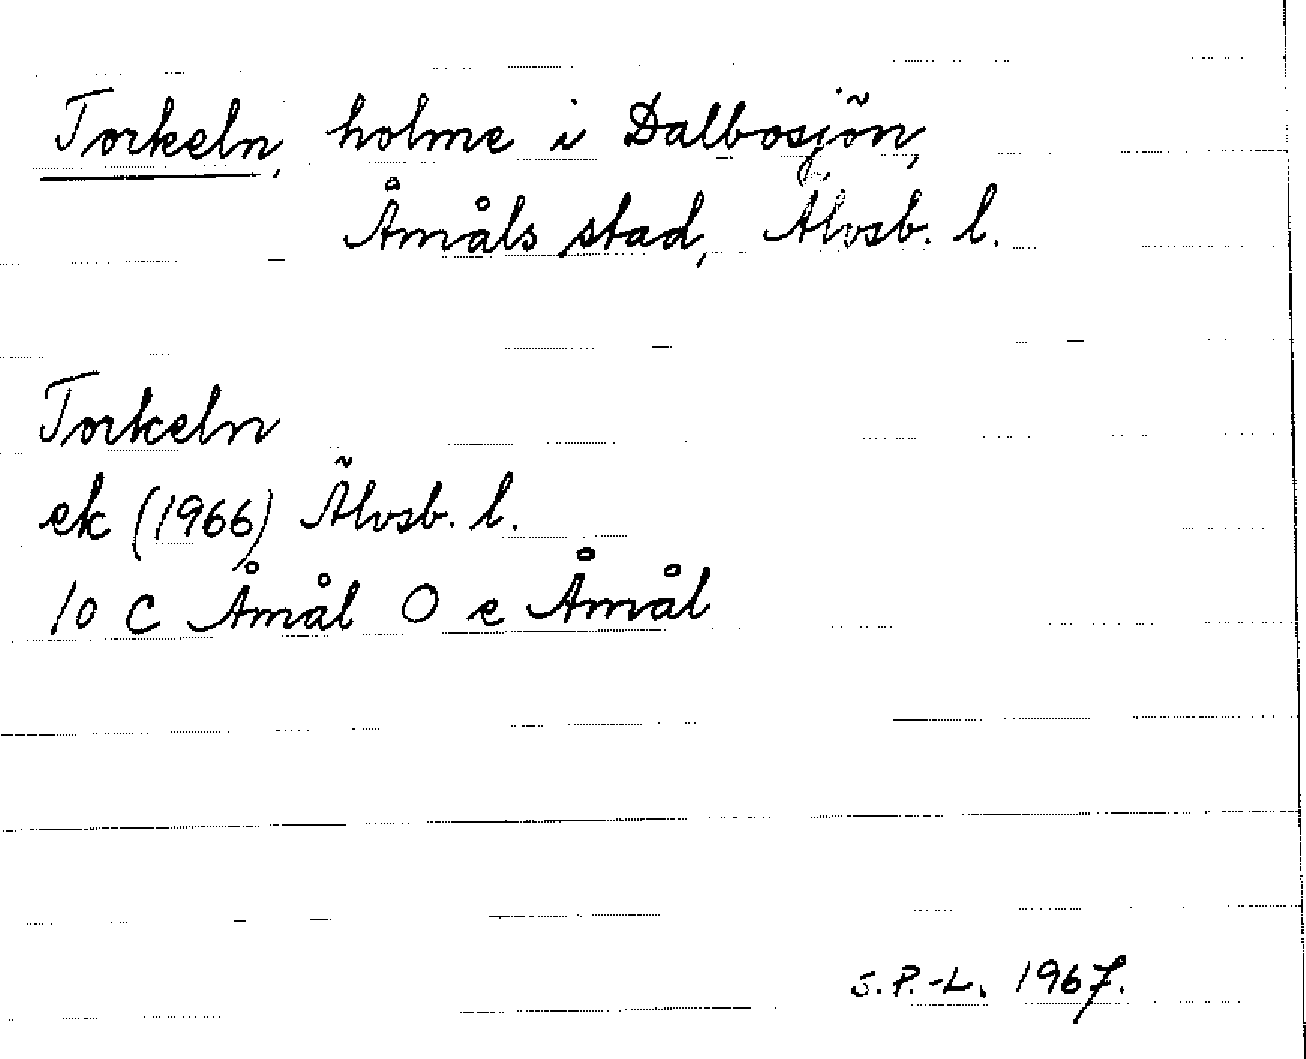 Torkeln, holme i Dalbosjön,
Åmåls stad, Älvsb. l.
Torkeln
ek (1966) Älvsb. l.
10 C Åmål O e Åmål
S.P.-L. 1967.